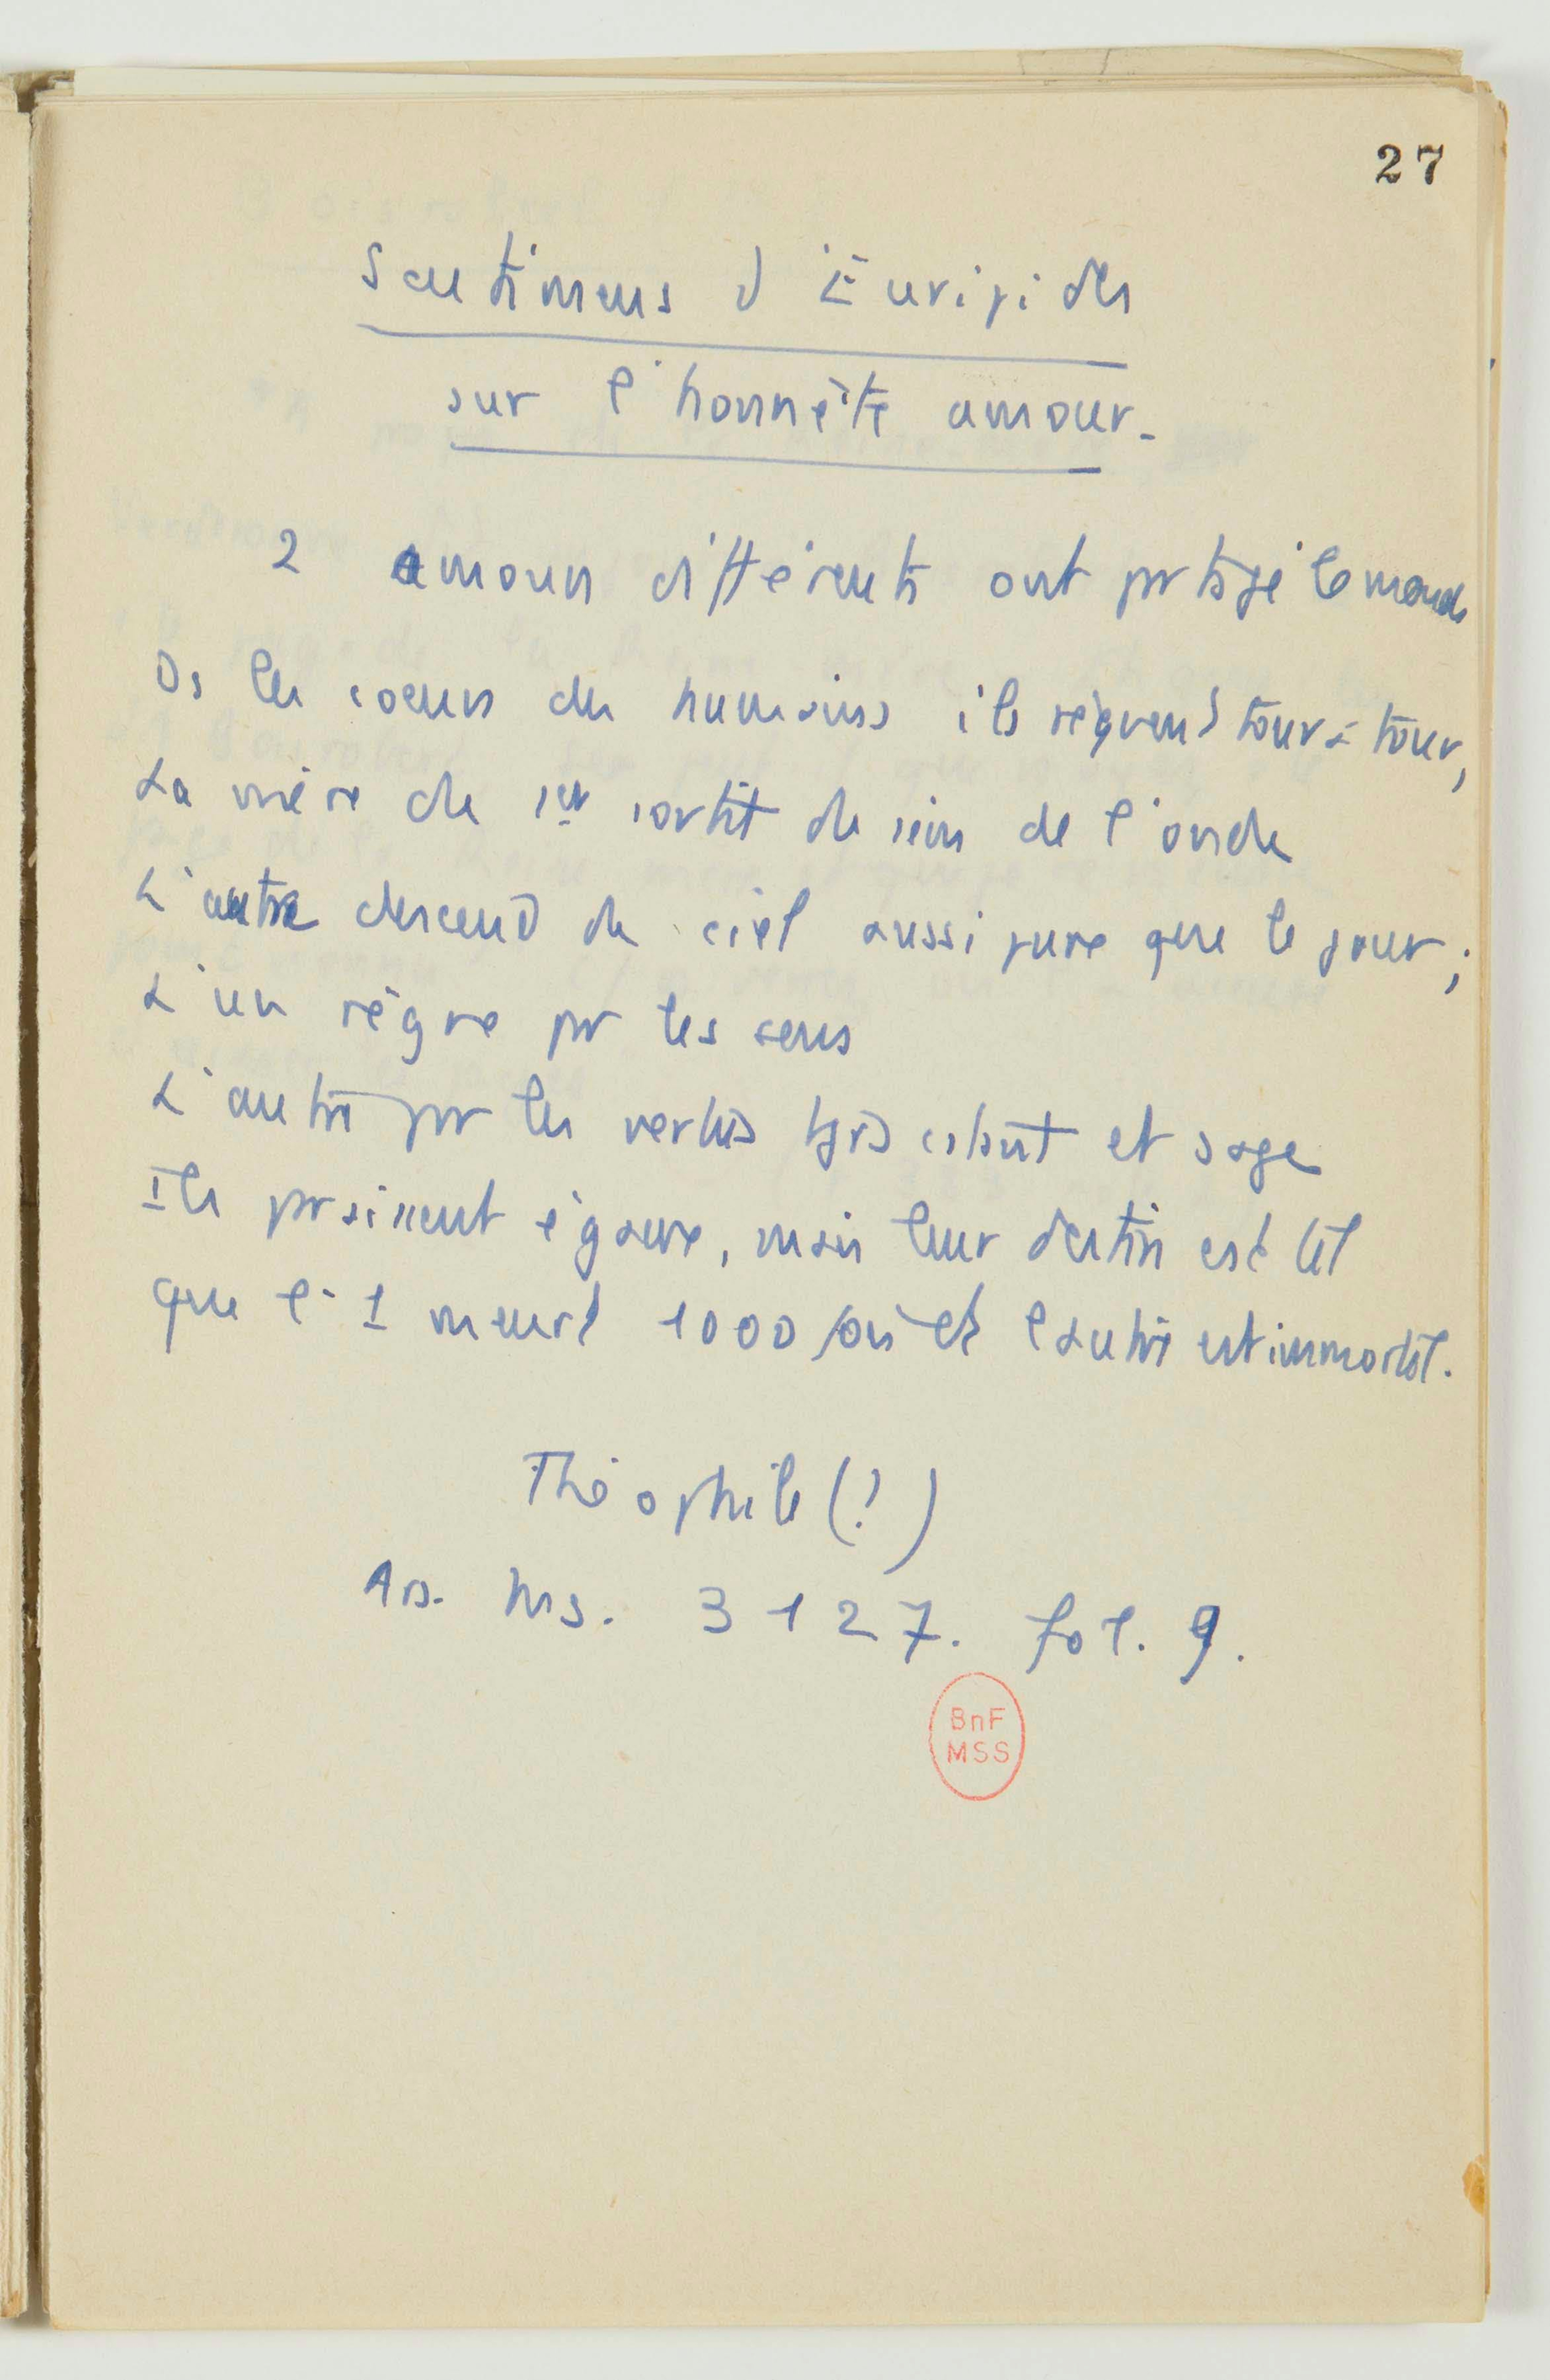 27
Sentimens d'Euripides
sur l'honnête amour.
2 amours différents ont prtagé le monde
Ds les coeurs des humains ils règnent tour à tour,
La mère du 1er sortit du sein de l'onde
L'autre descend du ciel aussi pure que le jour;
L'un règne pr les sens
L'autre pr les vertus tjrs et sage
Ils praissent égaux, mais leur destin est tel
que l'1 meurt 1000 fois et l'autre est immortel.
Théophile (?)
Ars. Ms. 3127. fol. 9.
BnF
MSS